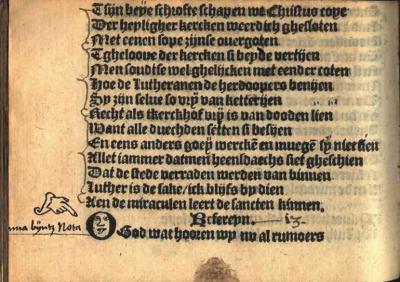 Tsijn beye schrofte schapen wt Christus coye
Der heyligher kercken weerdich ghesloten
Met eenen soye zijnse ouergoten
Tgheloove der kercken si beyde vertijen
Men soudtse wel ghelijcken met eender coten
Hoe de Lutheranen de herdoopers benijen
Sy zijn selue so vrij van ketterijen
Recht als tkerckhof vrij is van dooden lien
Want alle duechden setten si besijen
En eens anders goey wercke en muegē sy niet sien
Allet iammer datmen heensdaechs siet gheschien
Dat de stede verraden werden van binnen
Luther is de sake/ick blijfs by dien
Aen de miraculen leert de sancten kinnen.
Anna bijntz Nota
Refereyn. 13.
O God wat hooren wy nv al rumoers